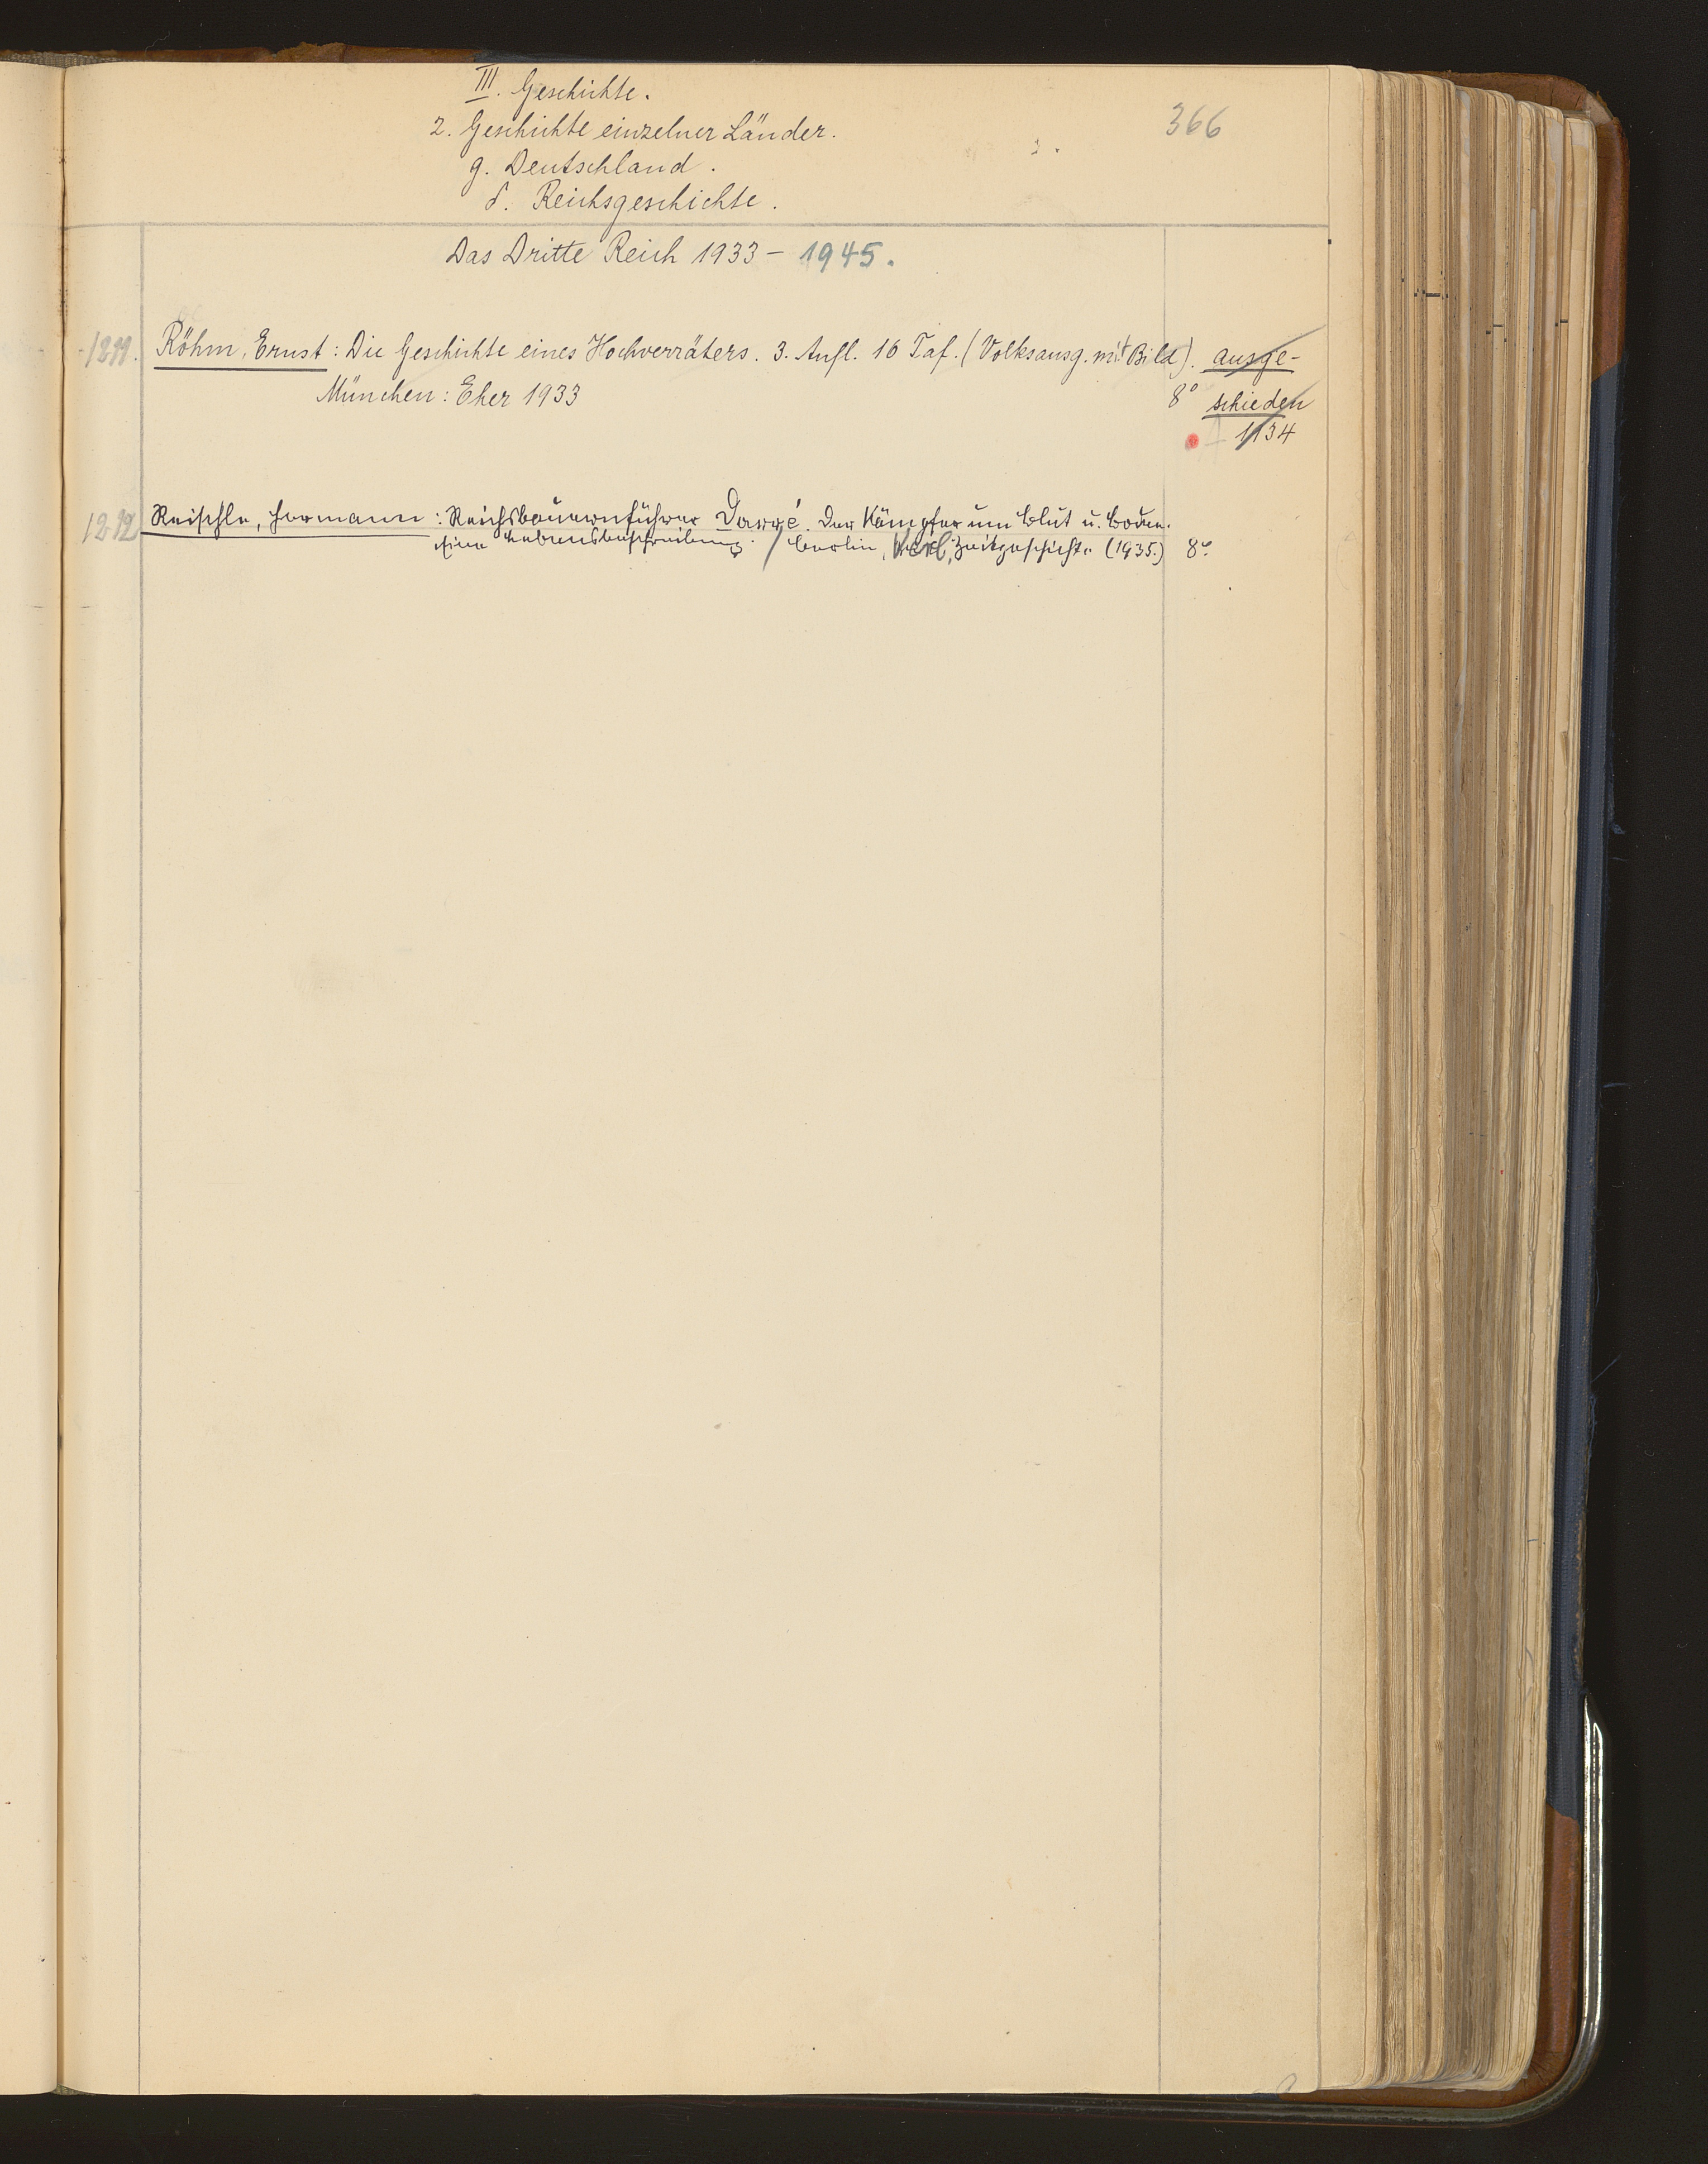 III. Geschichte.
366
2. Geschichte einzelner Länder.
g. Deutschland.
δ. Reichsgeschichte.
Das Dritte Reich 1933 – 1945.
Röhm, Ernst: Die Geschichte eines Hochverräters. 3. Aufl. 16 Taf. (Volksausg. mit Bild). ausge-
München: Eher 1933 8° schieden
1134
1212 Reischle, Hermann: Reichsbauernführer Darré. Der Kämpfer um Blut u. Boden.
Eine Lebensbeschreibung. / Berlin, Verl. Zeitgeschichte (1935.) 8°